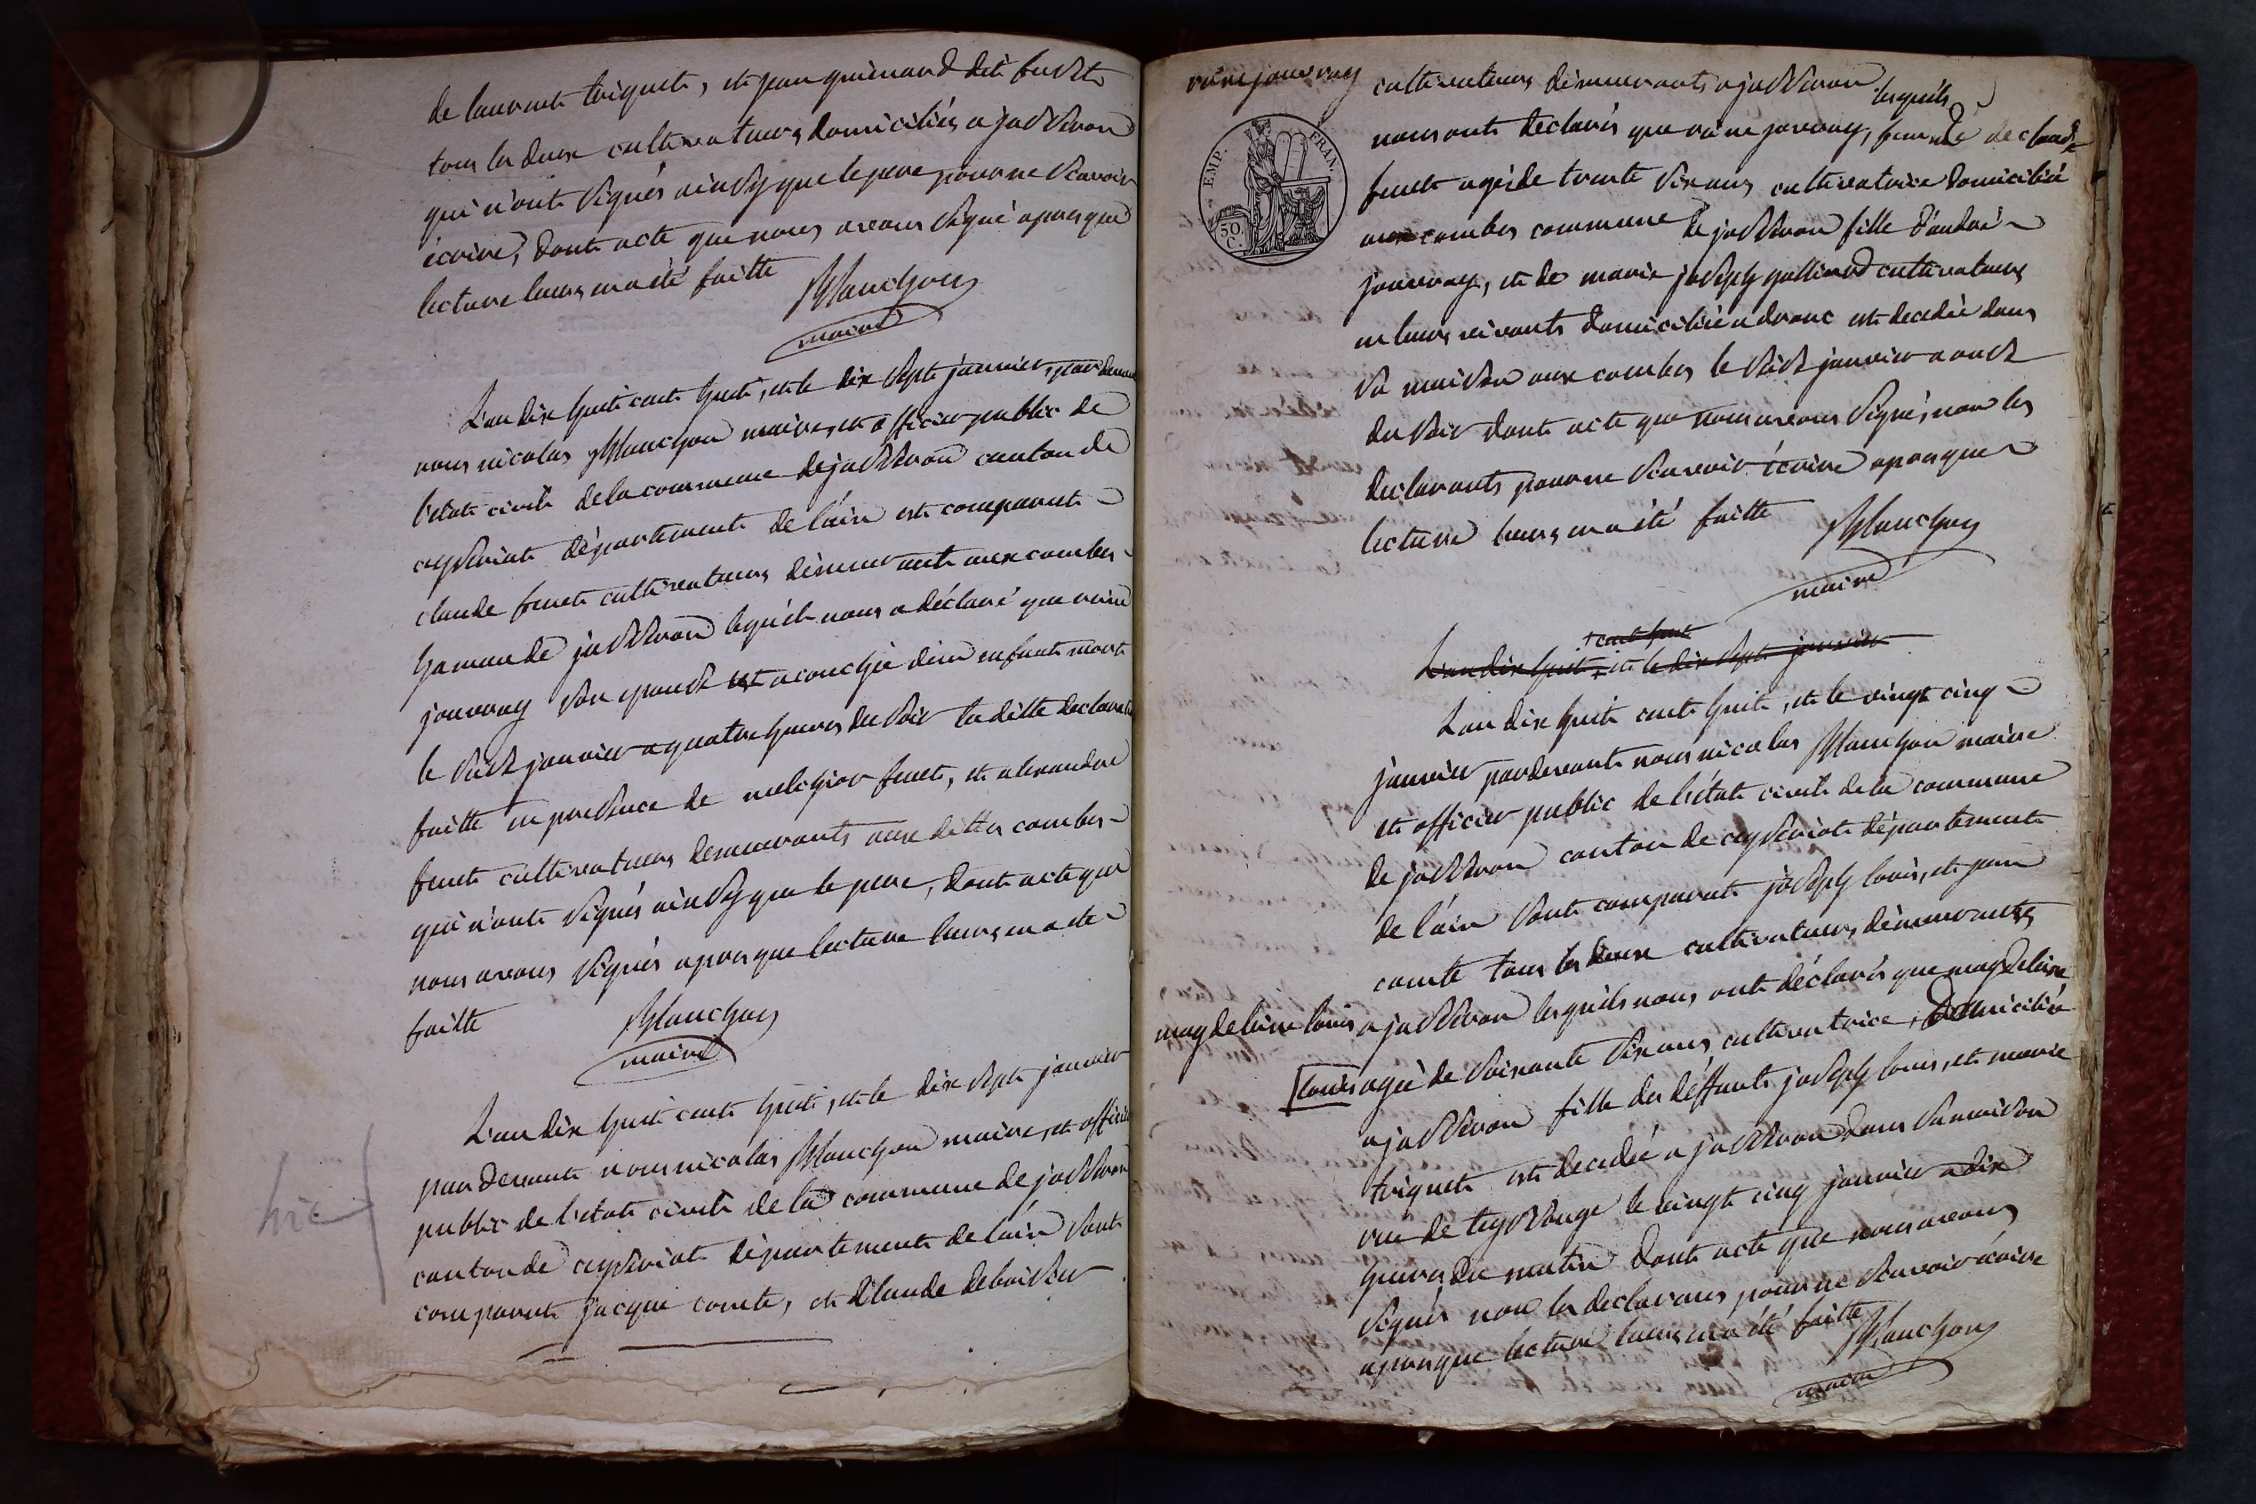 de laurent triquet, et jean guinard dit fusté
tous les deux cultivateurs domiciliés a jasseron
qui n'ont signés ainsy que le pere pour ne scavoir
écrire, dont acte que nous avons signé apres que
lecture leurs en a été faitte
Manchon
maire
L'an dix huit cent huit, et le dix sept janvier, par devant
nous nicolas Manchon maire, et officier public de
l'état civil de la commune de jasseron canton de
ceyseriat département de l'ain est comparut
claude feuet cultivateurs démeurant aux combes
hameau de jasseron lequel nous a déclaré que reine
jouvray son epouse est acouchée d'un enfant mort
le seize janvier a quatre heures du soir la ditte declaration
faitte en presence de melchior feuet, et alexandre
feuet cultivateurs demeurants aux dittes combes
qui n'ont signés ainsy que le pere, dont acte que
nous avons signés apres que lecture leurs en a été
faitte
Manchon
maire
L'an dix huit cent huit, et le dix sept janvier
par devant nous nicolas Manchon maire, et officier
public de l'état civil de la commune de jasseron
canton de ceyseriat département de l'ain sont
comparut jacque comte, et claude deboisset
reine jouvray
cultivateurs démeurants a jasseron lesquels
nous ont declarés que reine jouvray, femme de claude
feuet agée de trente six ans cultivatrice domiciliée
aux combes commune de jasseron fille d'andré
jouvray, et de marie joseph galliard cultivateurs
en leurs vivants domiciliés a drom est decedée dans
sa maison aux combes le seize janvier a onze
du soir dont acte que nous avons signé, non les
declarants pour ne scavoir écrire apres que
lecture leurs en a été faitte
Manchon
maire
EMP. FRAN.
50 C.
+ cent huit
L'an dix huit + et le dix sept janvier
L'an dix huit cent huit, et le vingt cinq
janvier pardevant nous nicolas Manchon maire
et officier public de l'état civil de la commune
de jasseron canton de ceyseriat département
de l'ain sont comparut joseph louis, et jean
comte tous les deux cultivateurs, démeurants
magdelaine louis
a jasseron lesquels nous ont déclarés que magdelaine
louis agée de soixante six ans cultivatrice, domiciliée
a jasseron fille du déffunt joseph louis, et marie
triquet est decedée a jasseron dans sa maison
rue de teyssonge le vingt cinq janvier a dix
heures du matin dont acte que nous avons
signés non les declarans pour ne scavoir écrire
apres que lecture leurs en a été faitte
Manchon
maire